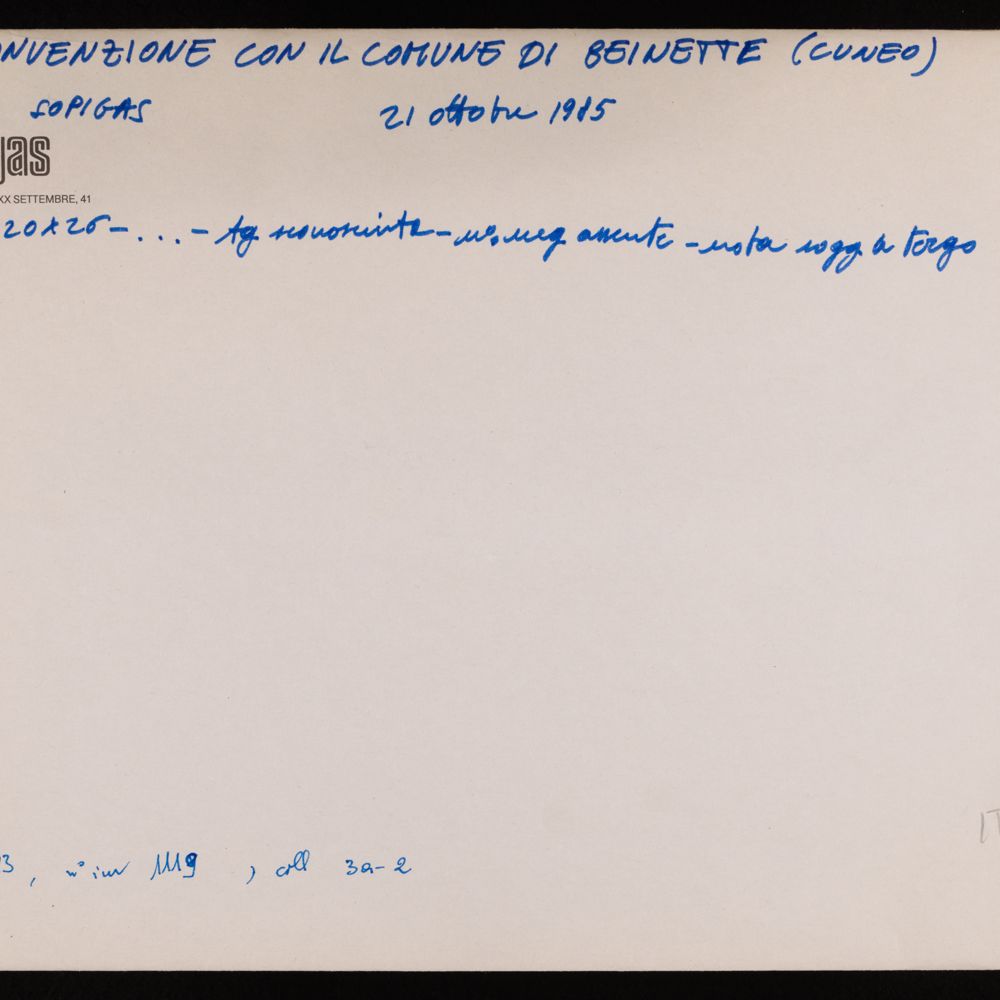 ONVENZIONE CON IL COMUNE DI BEINETTE (CUNEO)
SOPIGAS 21 ottobre 1985
gas
XX SETTEMBRE, 41
20x26 - ... - Ag sconosciuta - n°. neg assente - nota sogg a tergo
IT
3, n° inv 1119, coll 3a-2